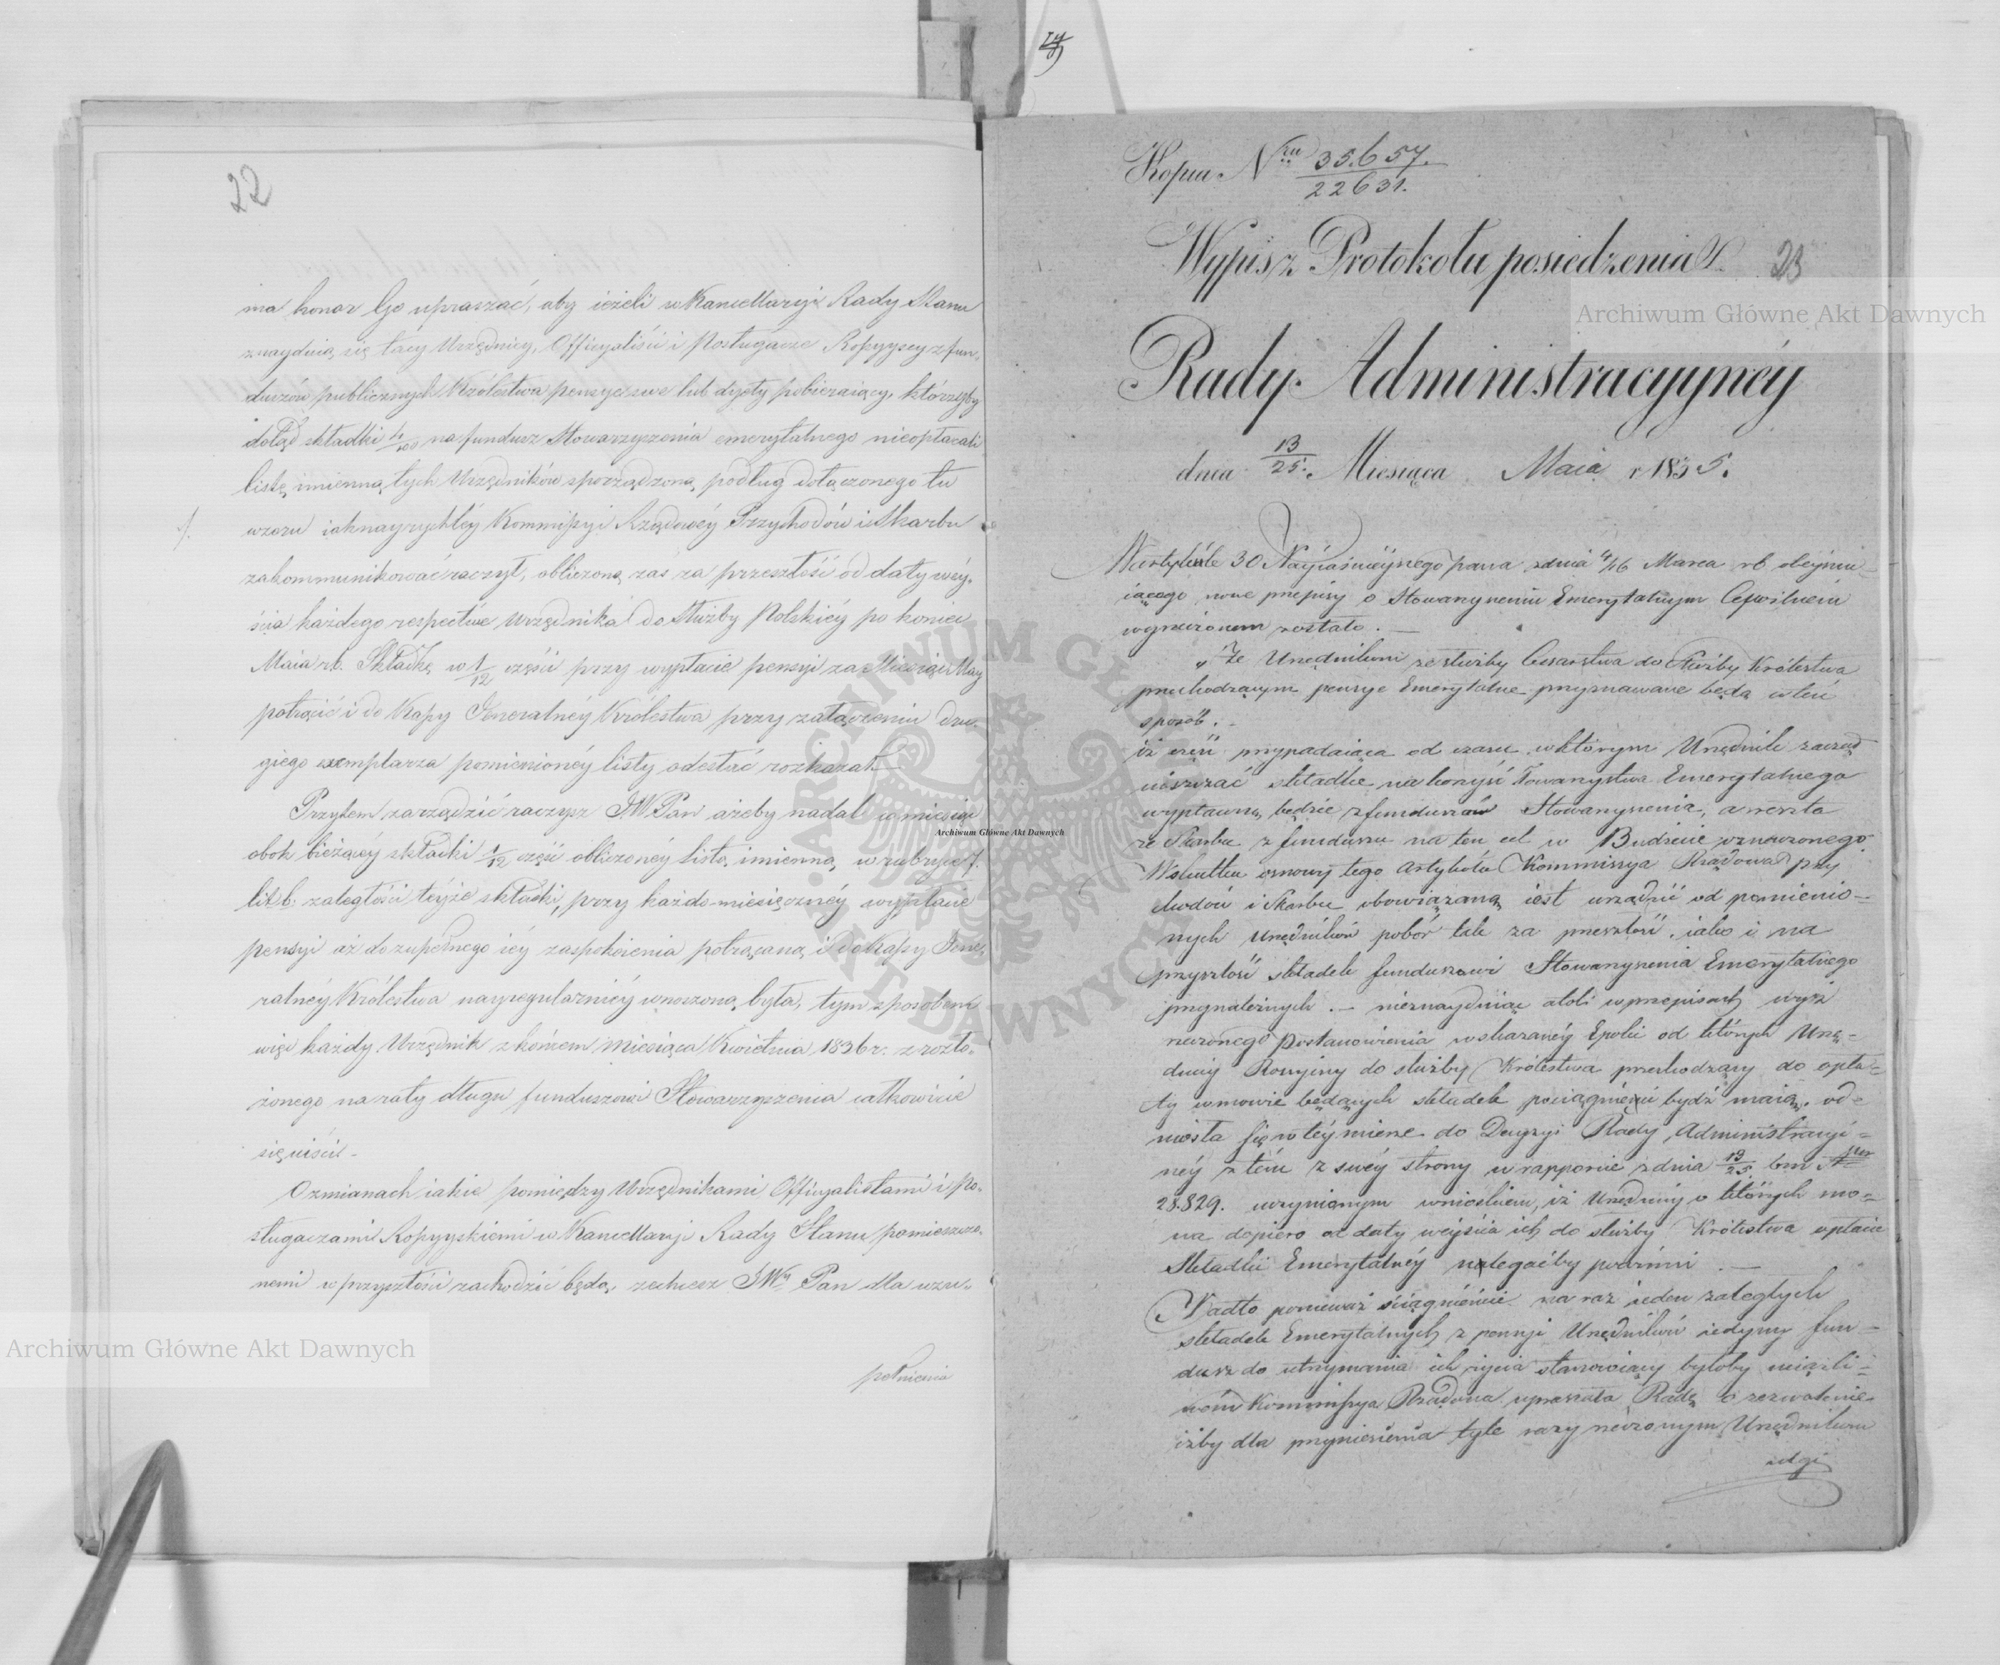 22
ma honor Go upraszać, aby ieżeli w Kancellaryi Rady Stanu
znayduią się tacy Urzędnicy, Officyaliści i Posługacze Rossyyscy z fun-
duszów publicznych Królestwa pensye swe lub dyety pobieraiący, którzyby
dotąd składki 4/100 na fundusz Stowarzyszenia emerytalnego nieopłacali
listę imienną tych Urzędników sporządzoną, podług dołączonego tu
wzoru iaknayrychléy Kommissyi Rządowéy Przychodów i Skarbu
zakommunikować raczył, obliczoną zaś za przeszłość od daty wey-
ścia każdego respective Urzędnika do Służby Polskiéy po koniec
Maia r.b. Składkę w 1/12 części przy wypłacie pensyi za Miesiąc May
potrącić i do Kassy Generalnéy Królestwa przy załączeniu dru-
giego exemplarza pomienionéy listy odesłać rozkazał.
Przytem zarządzić raczysz JW Pan ażeby nadal co miesiąc
obok bieżącéy składki 1/12 część obliczonéy listą imienną w rubryce 7.
lit. b. zaległości teyże składki, przy każdomiesięcznéy wypłacie
pensyi aż do zupełnego iéy zaspokoienia potrącaną i do Kassy Gene-
ralnéy Królestwa nayregularniéy wnoszoną była, tym sposobem
więc każdy Urzędnik z końcem Miesiąca Kwietnia 1836 r. z rozło-
żonego na raty długu funduszowi Stowarzyszenia całkowicie
się uiści.
O zmianach iakie pomiędzy Urzędnikami Officyalistami i Po-
sługaczami Rossyyskiemi w Kancellaryi Rady Stanu pomieszczo-
nemi w przyszłości zachodzić będą, zechcesz JW Pan dla uzu-
pełnienia
Kopia Nru 35.657.
22631.
Wypis z Protokołu posiedzenia
23
Rady Administracyynéy
dnia 13/25. Miesiąca Maia r 1835.
W artykule 30 Nayiaśnieyszego pana z dnia 4/16 Marca r b obeymu-
iącego nowe przepisy o Stowarzyszeniu Emerytalnym Cywilnem
wyrzeczonem zostało. —
„Że Urzędnikom ze służby Cesarstwa do Służby Królestwa
przechodzącym pensye Emerytalne przyznawane będą w ten
sposób.
iż część przypadaiąca od czasu w którym Urzędnik zaczął
uiszczać składkę na korzyść Towarzystwa Emerytalnego
wypłacaną będzie z funduszów Stowarzyszenia, a reszta
ze Skarbu z funduszu na ten cel w Budżecie wznowionego.
W skutku osnowy tego Artykułu Kommissya Rządowa przy-
chodów i Skarbu obowiązaną iest urządzić od pomienio-
nych Urzędników pobór tak za przeszłość iako i na
przyszłość składek funduszowi Stowarzyszenia Emerytalnego
przynależnych. — nieznayduiąc atoli w przepisach wyż
rzeczonego Postanowienia wskazanéy Epoki od których Urzę-
dnicy Rossyiscy do służby Królestwa przechodzący do opła-
ty w mowie będących składek pociągnieni bydź maią, od-
niosła się w téy mierze do Decyzyi Rady Administracyi-
néy z tém z swéy strony w rapporcie z dnia 13/25 bm Nro
28.829. uczynionym wnioskiem, iż Urzędnicy o których mo-
wa dopiero od daty weyścia ich do służby Królestwa opłacie
Składki Emerytalnéy ulegaćby powinni. —
Nadto ponieważ ściągnienie na raz ieden zaległych
składek Emerytalnych z pensyi Urzędników iedyny fun-
dusz do utrzymania ich życia stanowiący byłoby uciążli-
wém Kommissya Rządowa upraszała Radę o zezwolenie
iżby dla przyniesienia tyle razy rzeczonym Urzędnikom
ulgi
Archiwum Główne Akt Dawnych
Archiwum Główne Akt Dawnych
Archiwum Główne Akt Dawnych
ARCHIWUM GŁÓWNE AKT DAWNYCH